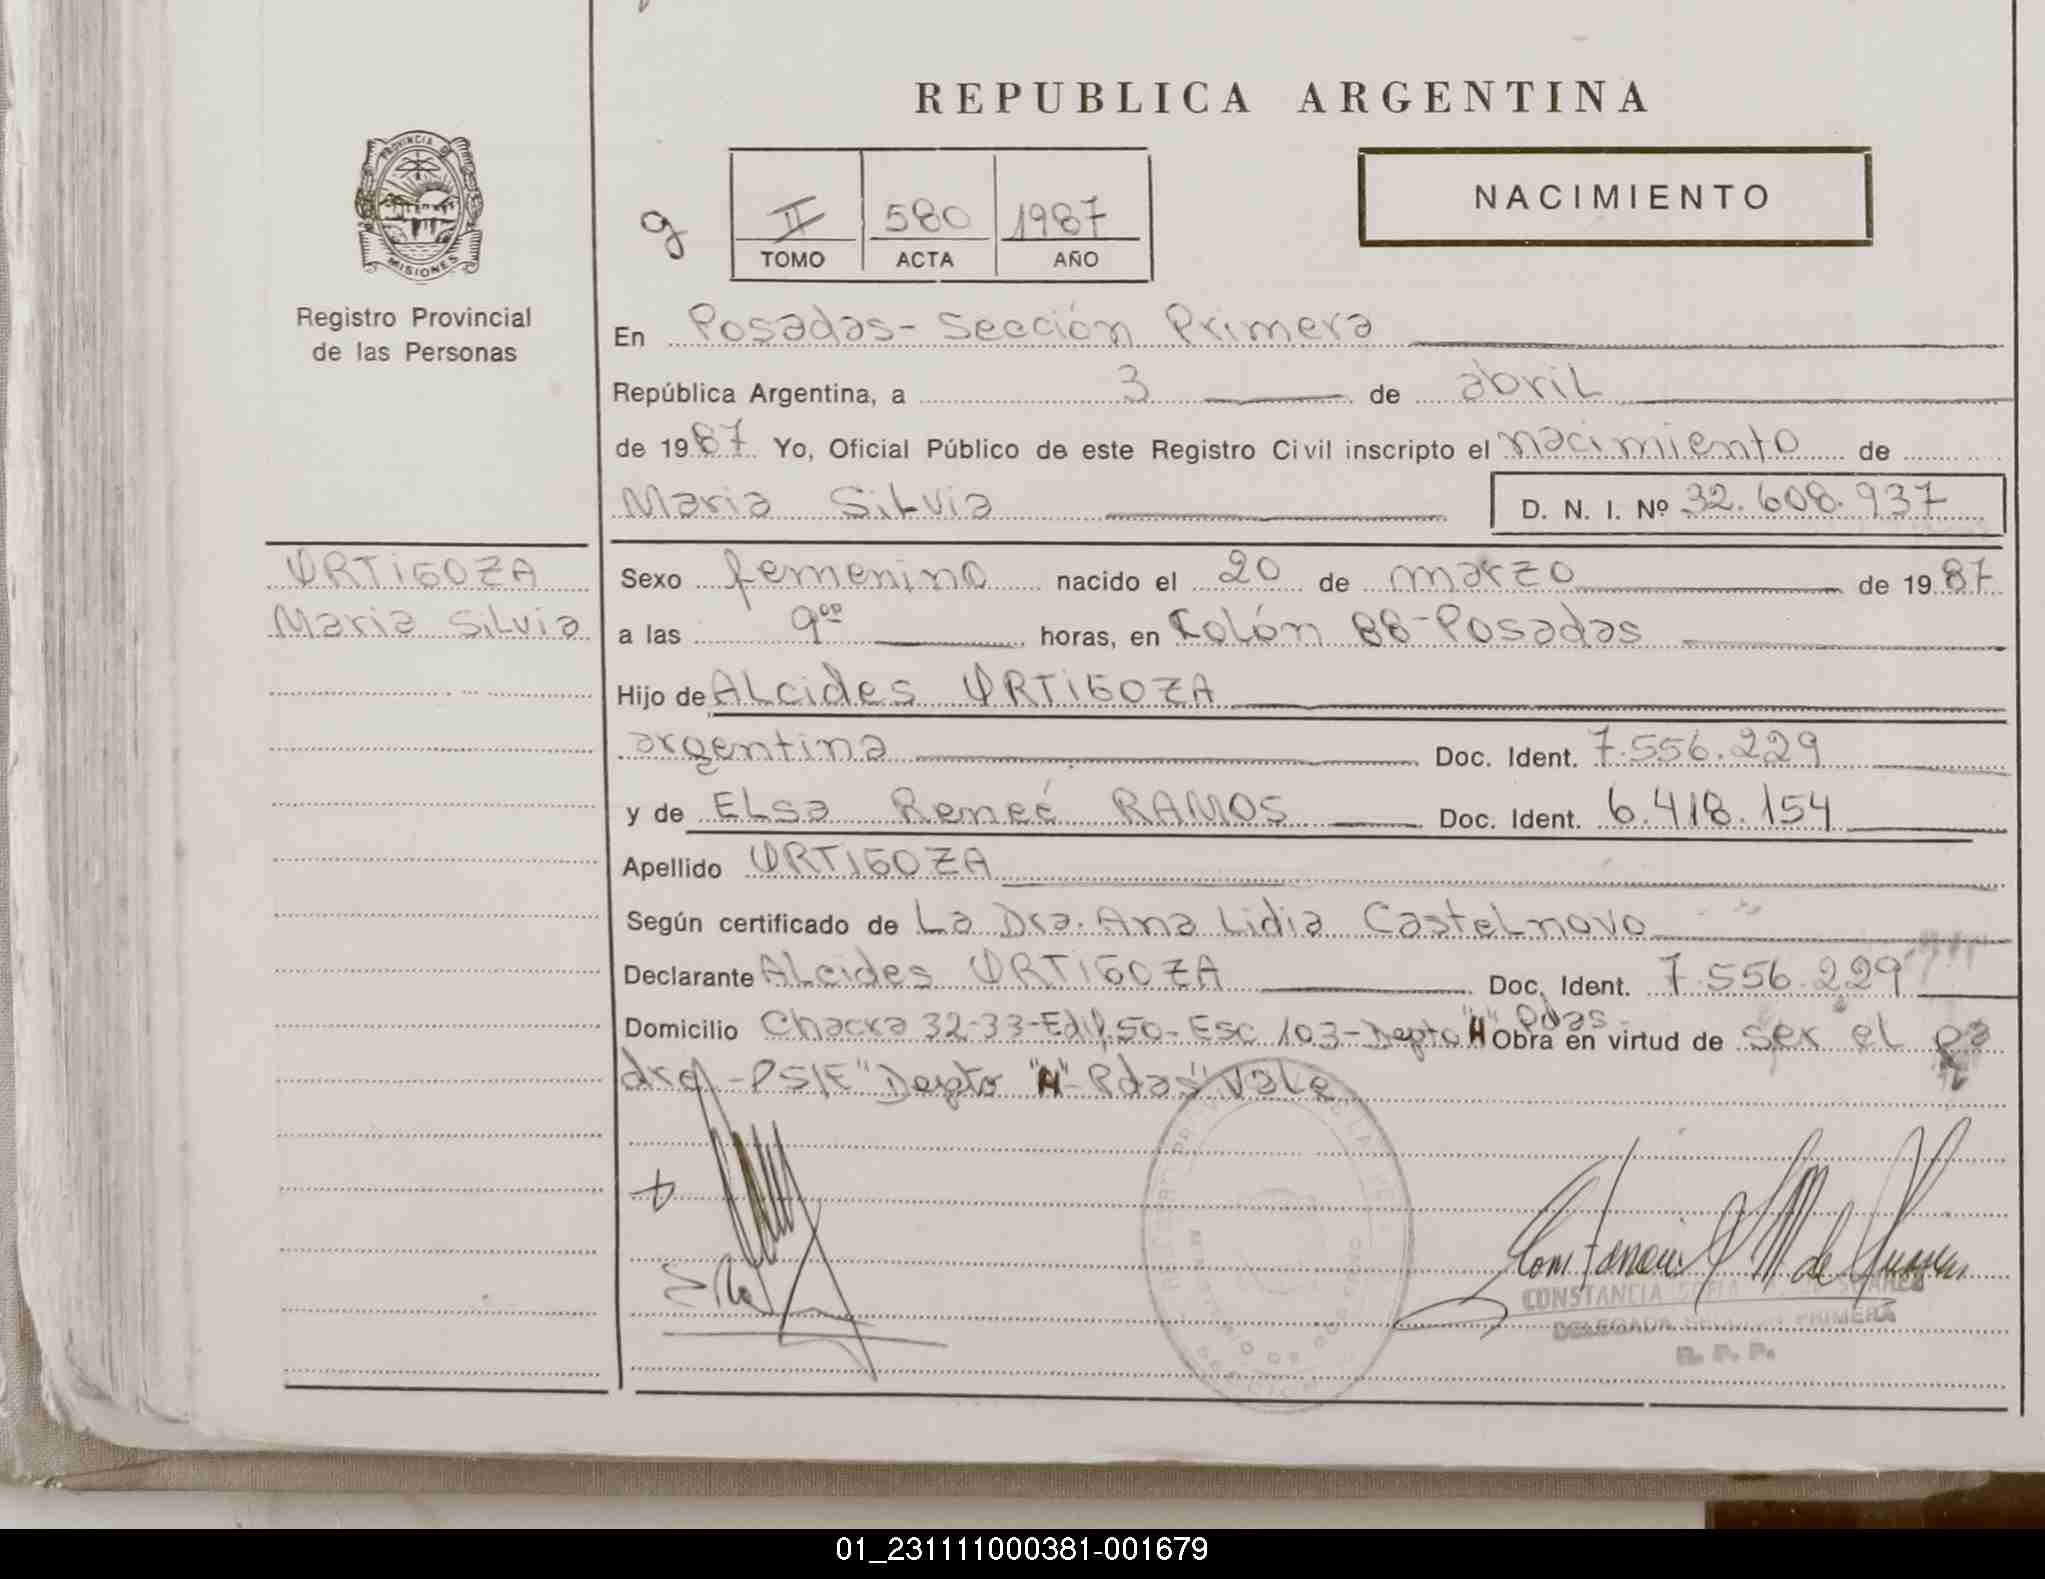 REPUBLICA ARGENTINA
PROVINCIA D
MISIONES
Registro Provincial
de las Personas
g
II 580 1987
TOMO ACTA AÑO
NACIMIENTO
En Posadas - Sección Primera
República Argentina, a 3 de abril
de 1987 Yo, Oficial Público de este Registro Civil inscripto el nacimiento de
Maria Silvia D. N. I. Nº 32.608.937
ORTIGOZA
Maria Silvia
Sexo femenino nacido el 20 de marzo de 1987
a las 9 00 horas, en Colón 88 - Posadas
Hijo de ALcides ORTIGOZA
argentina Doc. Ident. 7.556.229
y de ELsa Reneé RAMOS Doc. Ident. 6.418.154
Apellido ORTIGOZA
Según certificado de La Dra. Ana Lidia Castelnovo
Declarante ALcides ORTIGOZA Doc. Ident. 7.556.229
Domicilio Chacra 32-33-Edif.50-Esc 103-Depto "H" Pdas- Obra en virtud de ser el pa
dre/-PS/E "Depto "H"-Pdas" Vale
CONSTANCIA
DELEGADA SECCION PRIMERA
R. P. P.
01_231111000381-001679